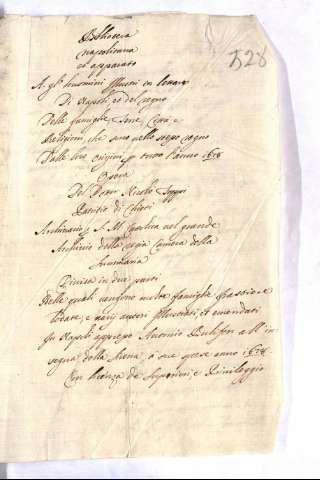 Biblioteca
napoletana
et apparato
A gli huomini Illustri in lettere
Di Napoli, et del regno
Delle famiglie, terre, Città, e
Religioni, che sono nello stesso regno
Dalle loro origini p tutto l'anno 1678
Opera
Del Dottor Nicolò Toppi
Patritio di Chieti
Archivario p S. M. Cattolica nel grande
Archivio della regia Camera della
Summaria
Divisa in due parti
Nelle quali vengono molte famiglie
lodate, e varij autori illustrati, et emendati
In Napoli appresso Antonio Bulifon all' in
segna della Sirena, a sue spese anno 1678
Con licenza de Superiori, e Privileggio